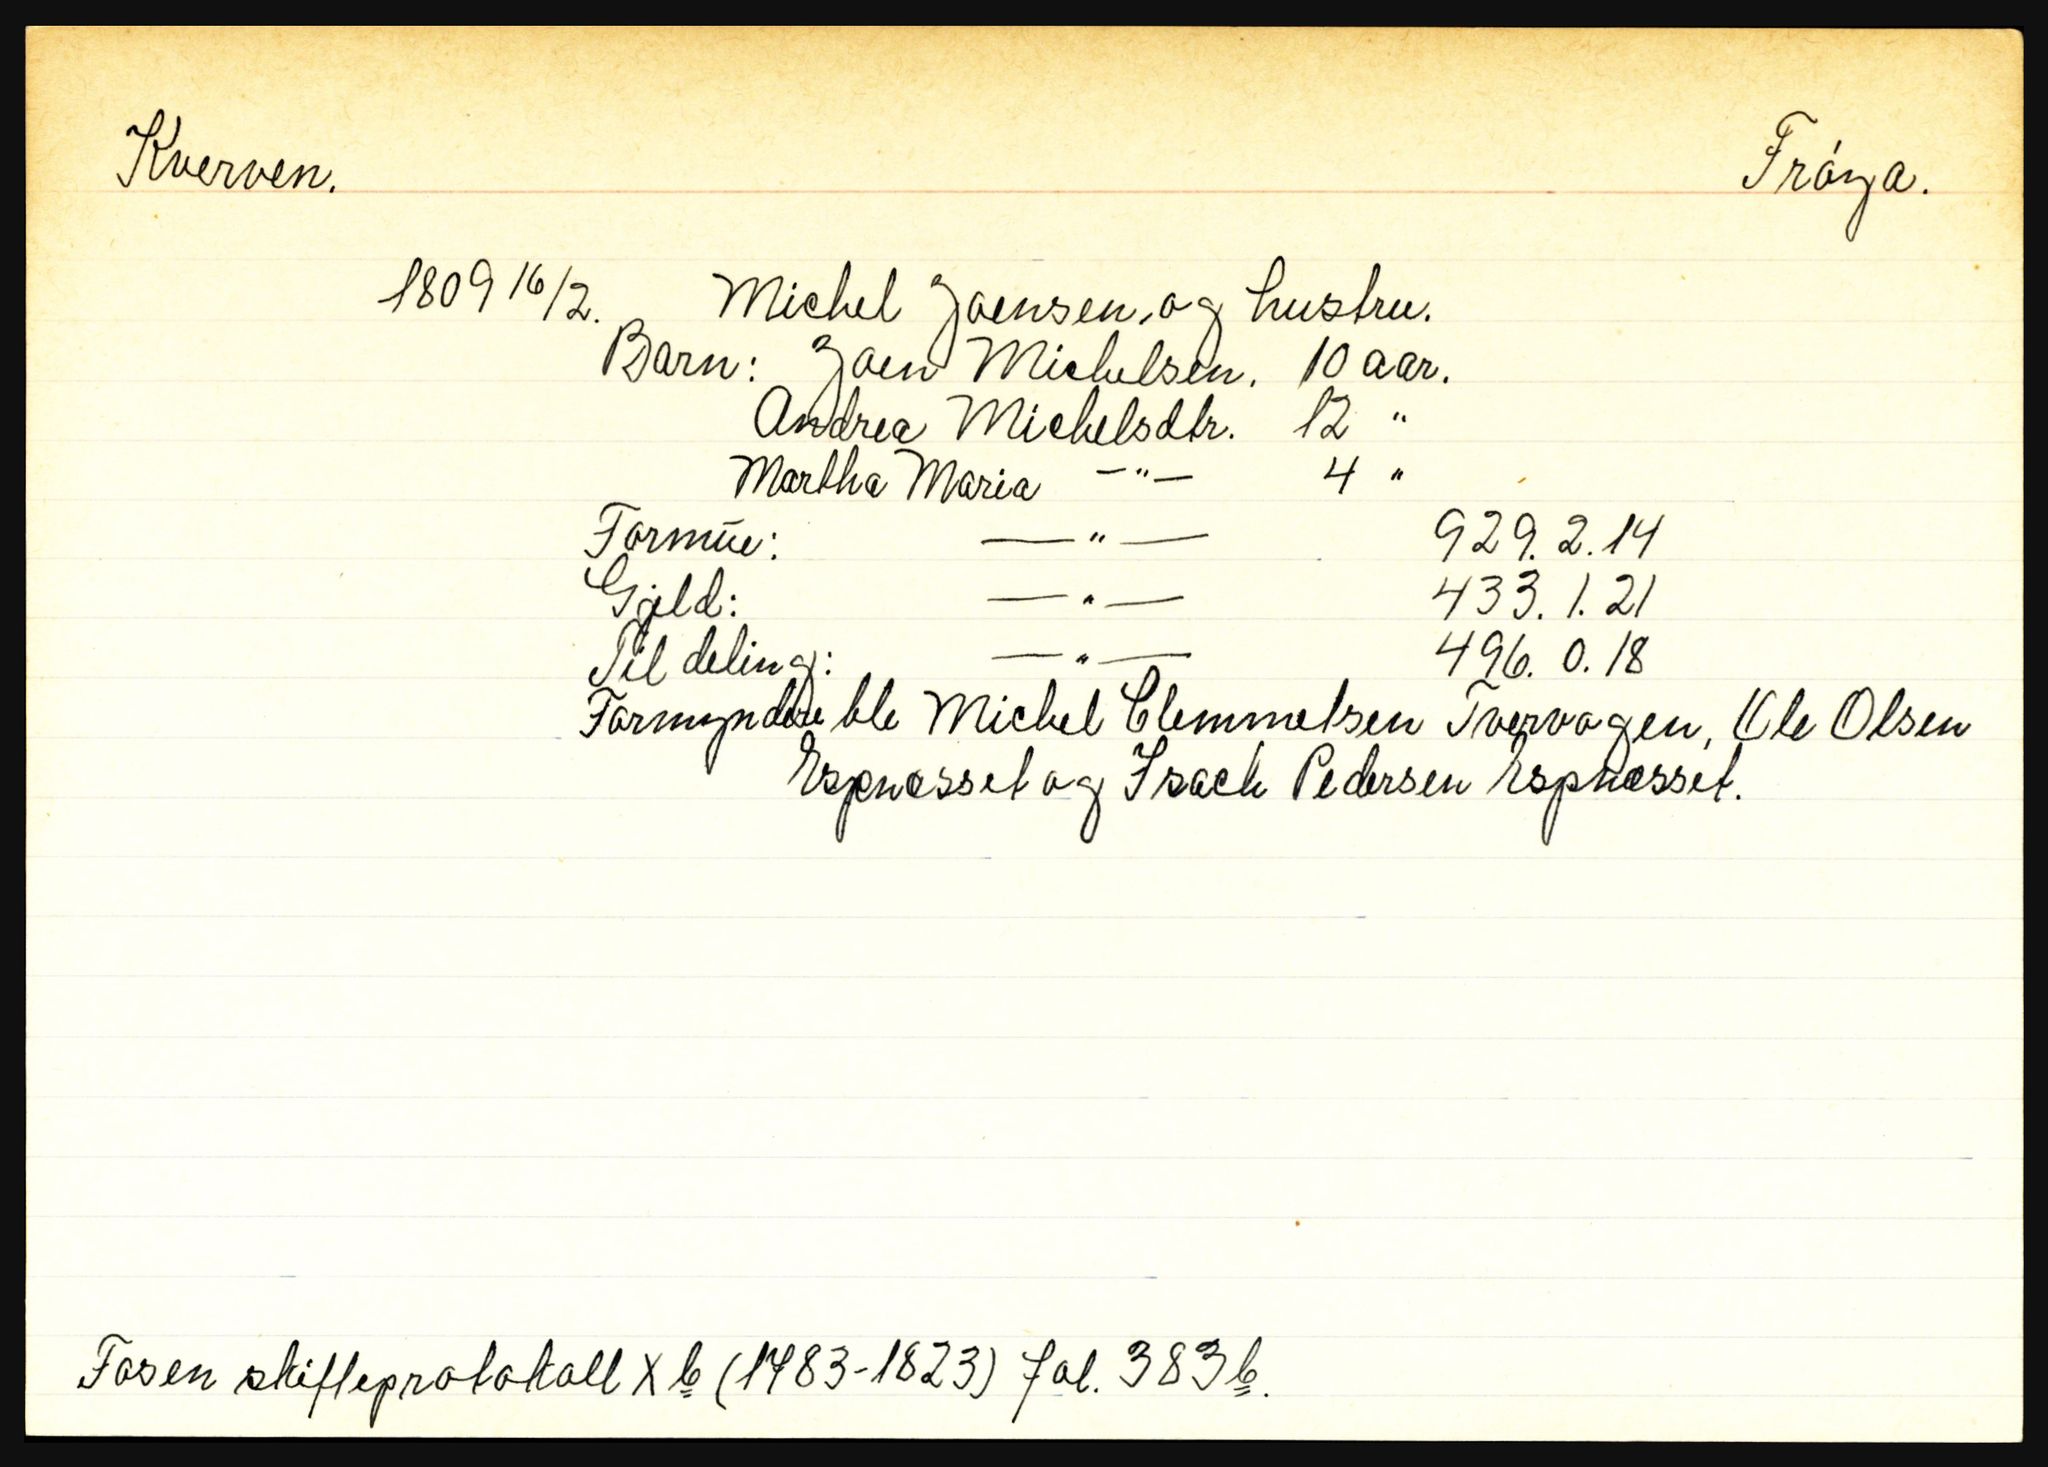 Kverven. Frøya.
1809 16/2. Michel Joensen, og hustru.
Barn: Joen Michelsen. 10 aar.
Andrea Michelsdtr. 12 "
Martha Maria —"— 4 "
Formue: —"— 929. 2. 14
Gjeld: —"— 433. 1. 21
Til deling: —"— 496. 0. 18
Formyndere ble Michel Clemmetsen Tvervagen, Ole Olsen
Espnesset og Isach Pedersen Espnesset.
Fosen skifteprotokoll X b (1783-1823) fol. 383 b.